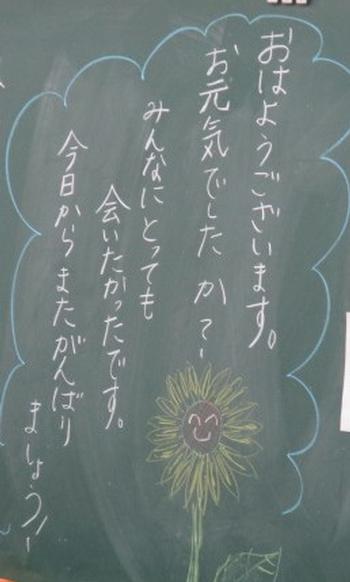 おはようございます。
お元気でしたか？
みんなにとっても
会いたかったです。
今日からまたがんばり
ましょう！